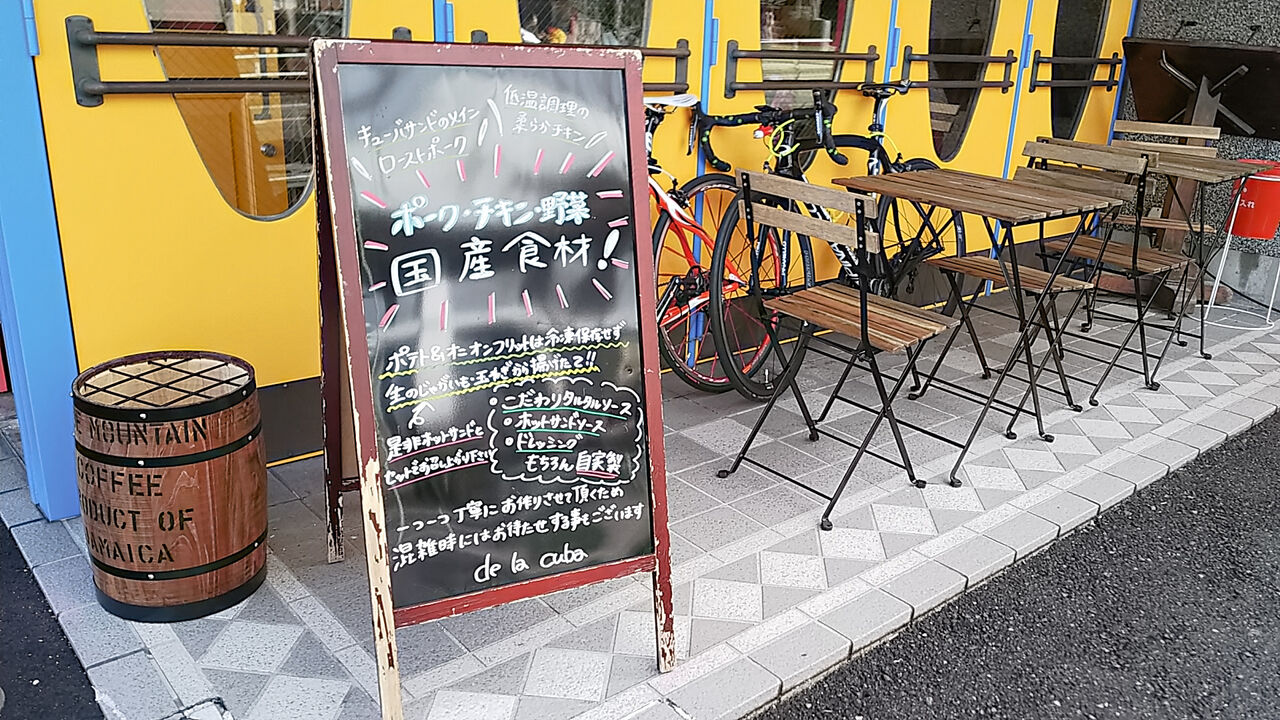 キューバサンドのメイン
ローストポーク
低温調理の
柔らかチキン
ポーク・チキン・野菜
国産食材!
ポテト&オニオンフリットは冷凍保存せず
生のじゃがいも・玉ねぎから揚げたて!!
是非ホットサンドと
セットでお召し上がり下さい
・こだわりタルタルソース
・ホットサンドソース
・ドレッシング
もちろん自家製
一つ一つ丁寧にお作りさせて頂くため
混雑時にはお待たせする事もございます
de la cuba
MOUNTAIN
COFFEE
DUCT OF
AMAICA
入れ